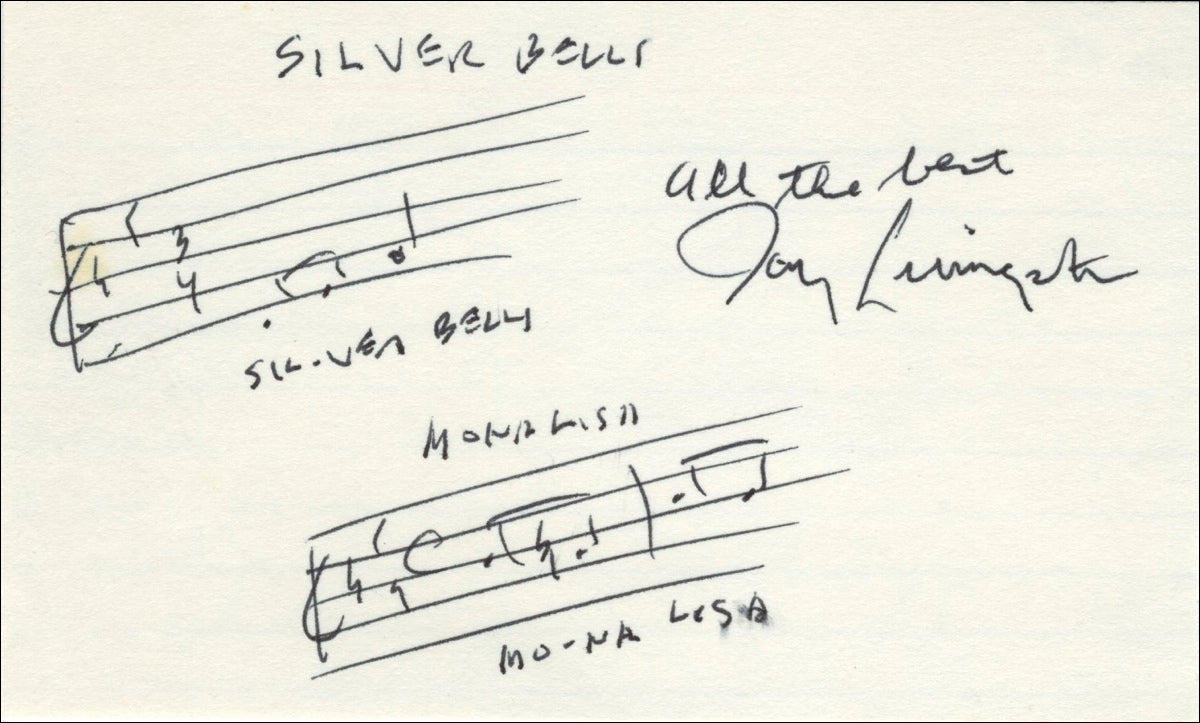 SILVER BELLS
3
4
All the best
Jay Livingston
SIL-VER BELLS
MONA LISA
MO-NA LISA